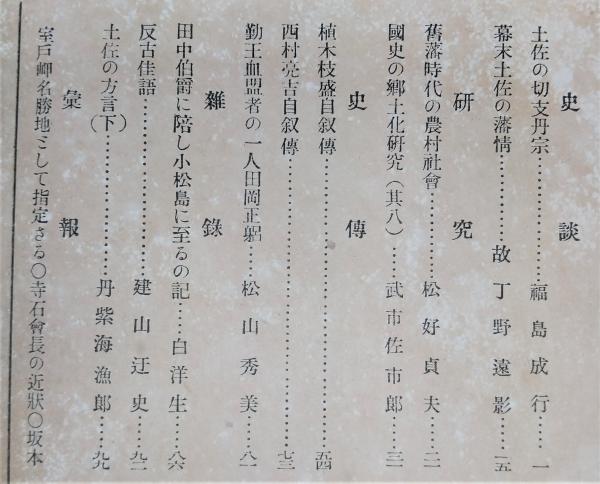 史談
土佐の切支丹宗…………福島成行…一
幕末土佐の藩情……故丁野遠影…一五
研究
舊藩時代の農村社會………松好貞夫…二一
國史の鄕土化硏究(其八)……武市佐市郞…三一
史傳
植木枝盛自叙傳……………………………五四
西村亮吉自叙傳……………………………七三
勤王血盟者の一人田岡正躬……松山秀美…八一
雜錄
田中伯爵に陪し小松島に至るの記……白洋生…八六
反古佳語…………………建山迂史…九二
土佐の方言(下)……………丹紫海漁郞…九九
彙報
室戸岬名勝地として指定さる〇寺石會長の近狀〇坂本